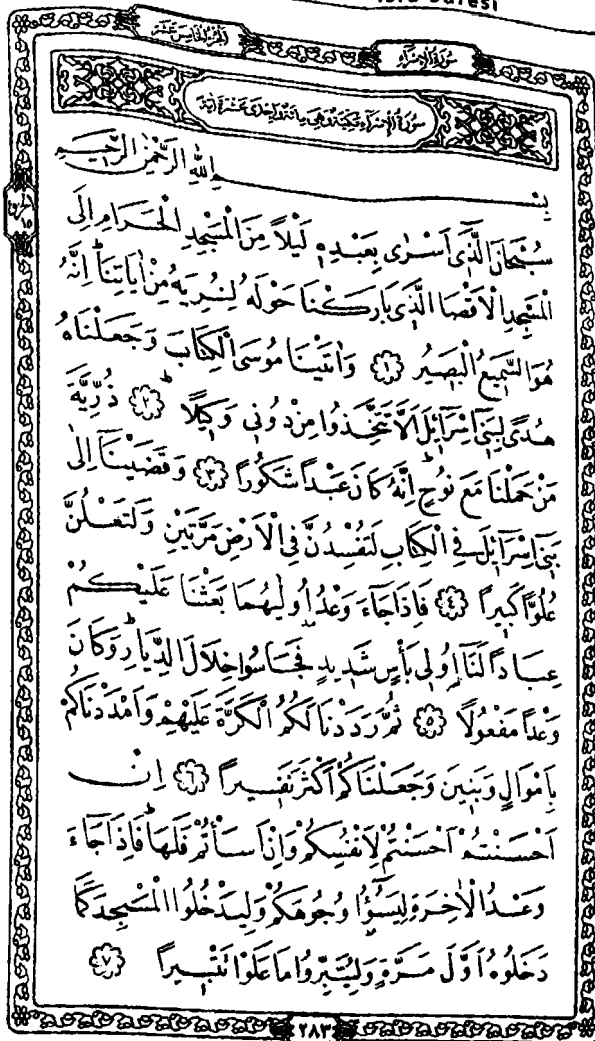 İsrâ Sûresi
الجزء الخامس عشر
سورة الإسراء
سورة الإسراء مكية وهي مائة وإحدى عشرة آية
بِسْمِ اللهِ الرَّحْمٰنِ الرَّحِيمِ
سُبْحَانَ الَّذِي اَسْرٰى بِعَبْدِهِ لَيْلاً مِنَ الْمَسْجِدِ الْحَرَامِ اِلَى
الْمَسْجِدِ الْاَقْصَا الَّذِي بَارَكْنَا حَوْلَهُ لِنُرِيَهُ مِنْ اٰيَاتِنَاۜ اِنَّهُ
هُوَ السَّمِيعُ الْبَصِيرُ ﴿١﴾ وَاٰتَيْنَا مُوسَى الْكِتَابَ وَجَعَلْنَاهُ
هُدًى لِبَنِي اِسْرَٓائِلَ اَلَّا تَتَّخِذُوا مِنْ دُونِي وَكِيلًاۜ ﴿٢﴾ ذُرِّيَّةَ
مَنْ حَمَلْنَا مَعَ نُوحٍۜ اِنَّهُ كَانَ عَبْدًا شَكُورًا ﴿٣﴾ وَقَضَيْنَا اِلٰى
بَنِي اِسْرَٓائِلَ فِي الْكِتَابِ لَتُفْسِدُنَّ فِي الْاَرْضِ مَرَّتَيْنِ وَلَتَعْلُنَّ
عُلُوًّا كَبِيرًا ﴿٤﴾ فَاِذَا جَٓاءَ وَعْدُ اُو۫لٰيهُمَا بَعَثْنَا عَلَيْكُمْ
عِبَادًا لَنَٓا اُو۬لِي بَأْسٍ شَدِيدٍ فَجَاسُوا خِلَالَ الدِّيَارِۜ وَكَانَ
وَعْدًا مَفْعُولًا ﴿٥﴾ ثُمَّ رَدَدْنَا لَكُمُ الْكَرَّةَ عَلَيْهِمْ وَاَمْدَدْنَاكُمْ
بِاَمْوَالٍ وَبَنِينَ وَجَعَلْنَاكُمْ اَكْثَرَ نَفِيرًا ﴿٦﴾ اِنْ
اَحْسَنْتُمْ اَحْسَنْتُمْ لِاَنْفُسِكُمْ وَاِنْ اَسَأْتُمْ فَلَهَاۜ فَاِذَا جَٓاءَ
وَعْدُ الْاٰخِرَةِ لِيَسُٓوؤُ۫ا وُجُوهَكُمْ وَلِيَدْخُلُوا الْمَسْجِدَ كَمَا
دَخَلُوهُ اَوَّلَ مَرَّةٍ وَلِيُتَبِّرُوا مَا عَلَوْا تَتْبِيرًا ﴿٧﴾
٢٨٣